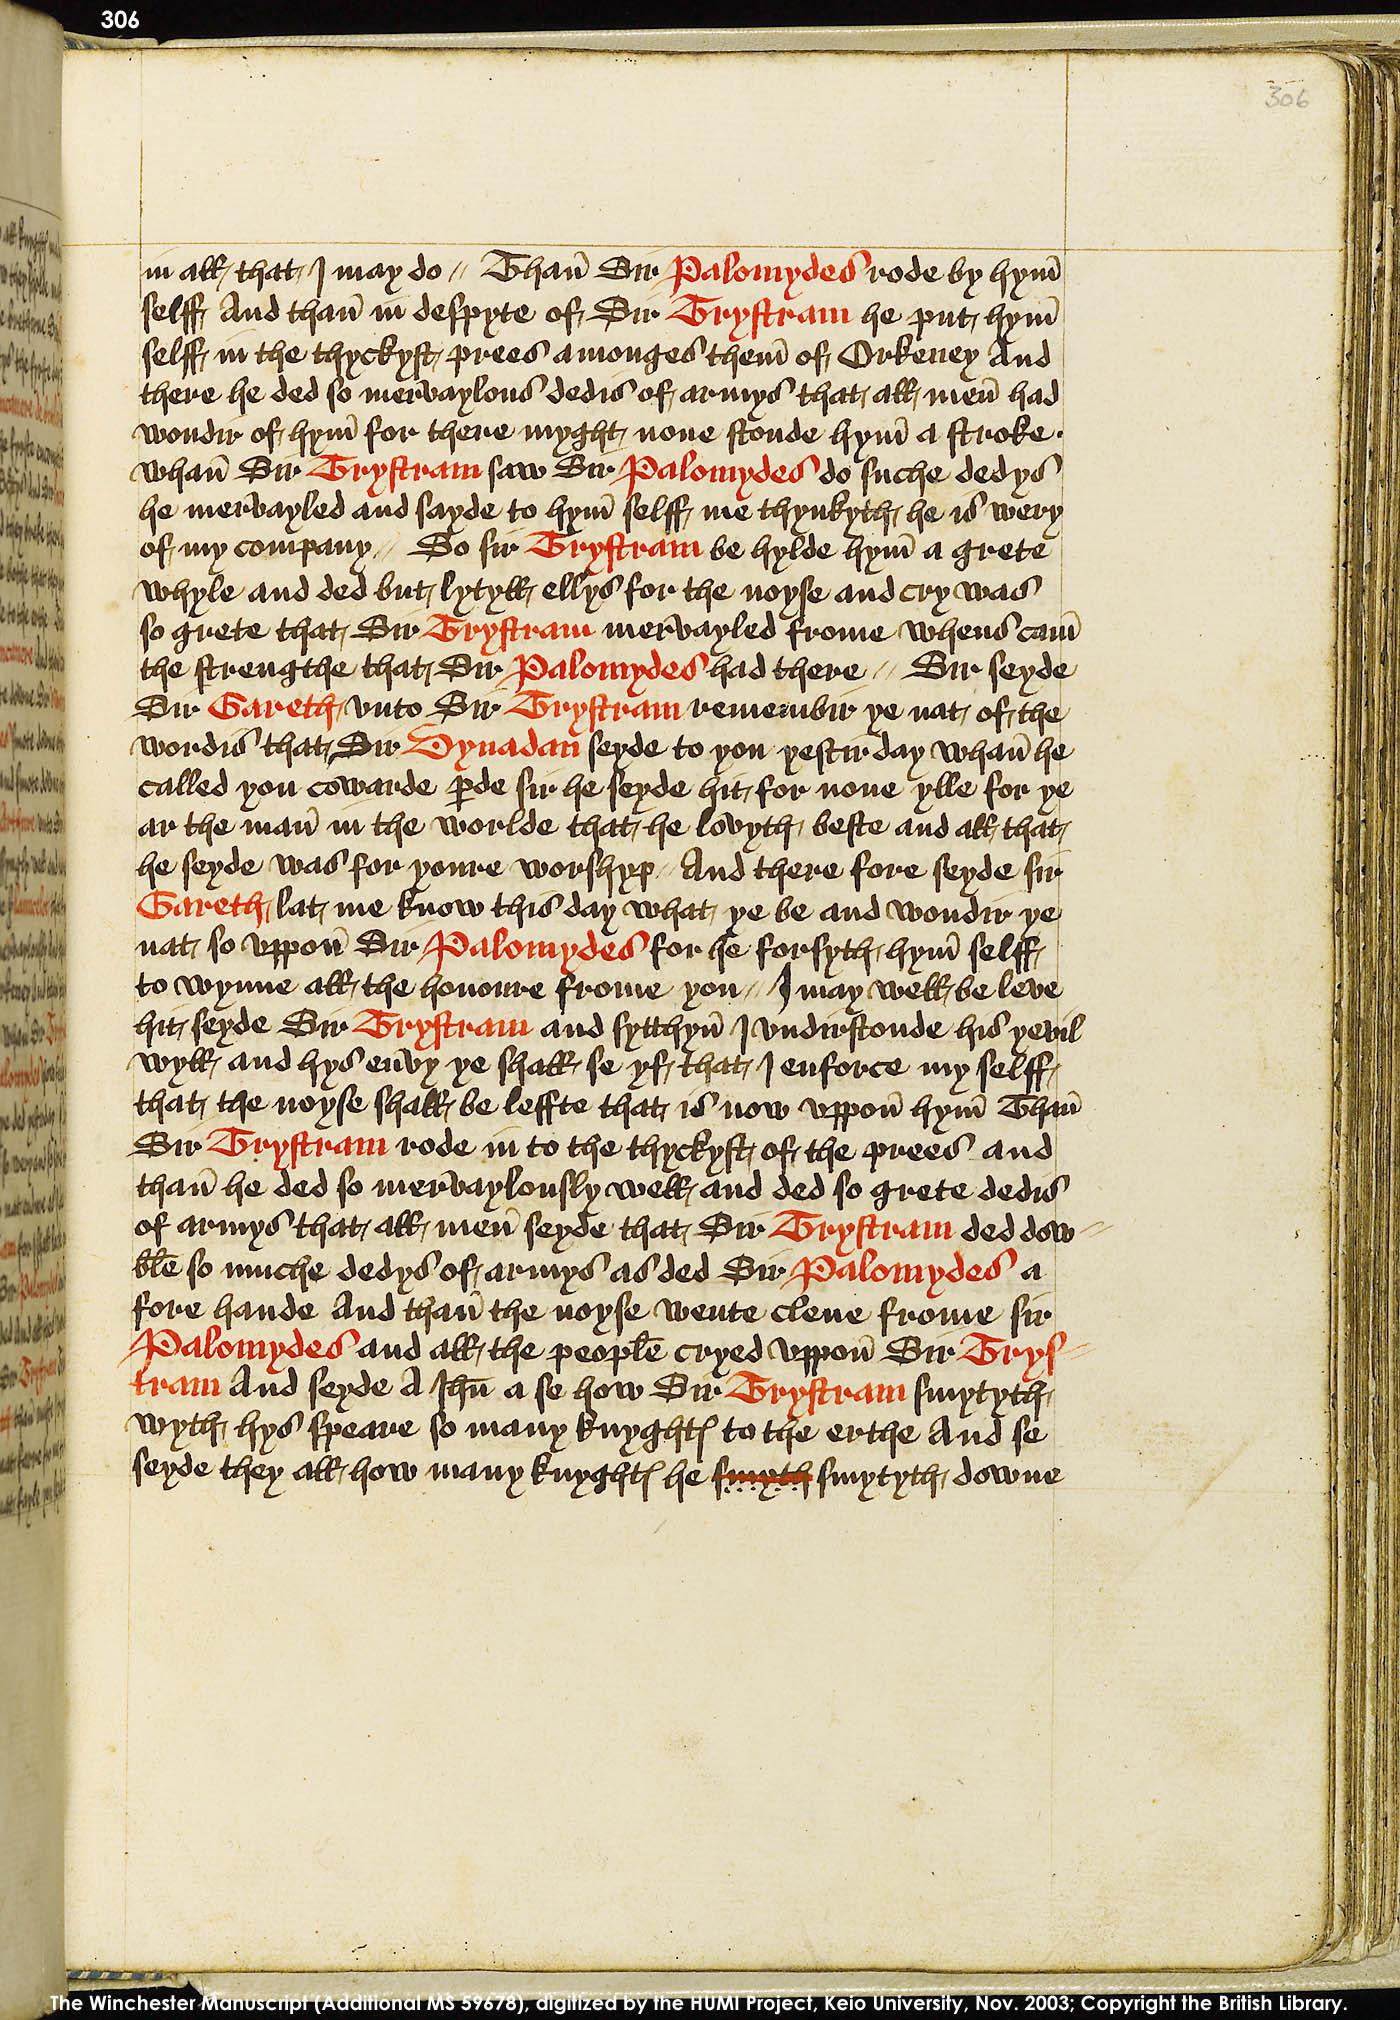 306
306
in all that I may do // Than̄ Sir Palomydes rode by hym̄
selff And than̄ in despyte of Sir Trystram he put hym̄
selff in the thyckyst prees amonges them̄ of Orkeney And
there he ded so mervaylous dedis of armys that all men̄ had
wondir of hym̄ for there myght none stonde hym̄ a stroke .
whan̄ Sir Trystram saw Sir Palomydes do suche dedys
he mervayled and sayde to hym̄ selff me thynkyth he is wery
of my company // So sir Trystram be hylde hym̄ a grete
whyle and ded but lytyll ellys for the noyse and cry was
so grete that Sir Trystram mervayled frome whens cam̄
the strengthe that Sir Palomydes had there // Sir seyde
Sir Gareth vnto Sir Trystram remembir ye nat of the
wordis that Sir Dynadan seyde to you yestirday whan̄ he
called you cowarde ꝑde sir he seyde hit for none ylle for ye
ar the man̄ in the worlde that he lovyth beste and all that
he seyde was for youre worshyp // And there fore seyde sir
Gareth lat me know this day what ye be and wondir ye
nat so vppon̄ Sir Palomydes for he forsyth hym̄ selff
to wynne all the honoure frome you // I may well be leve
hit seyde Sir Trystram and sytthyn̄ I vndirstonde his yevil
wyll and hys envy ye shall se yf that I enforce my selff
that the noyse shall be leffte that is now vppon̄ hym̄ Than̄
Sir Trystram rode in to the thyckyst of the prees and
than̄ he ded so mervaylously well and ded so grete dedis
of armys that all men̄ seyde that Sir Trystram ded dow//
ble so muche dedys of armys as ded Sir Palomydes a
fore hande And than̄ the noyse wente clene frome sir
Palomydes and all the people cryed vppon̄ Sir Trys//
tram And seyde A Ihū a se how Sir Trystram smytyth
wyth hys speare so many knyghtꝭ to the erthe And se
seyde they all how many knyghtꝭ he smyth smytyth downe
The Winchester Manuscript (Additional MS 59678), digitized by the HUMI Project, Keio University, Nov. 2003; Copyright the British Library.